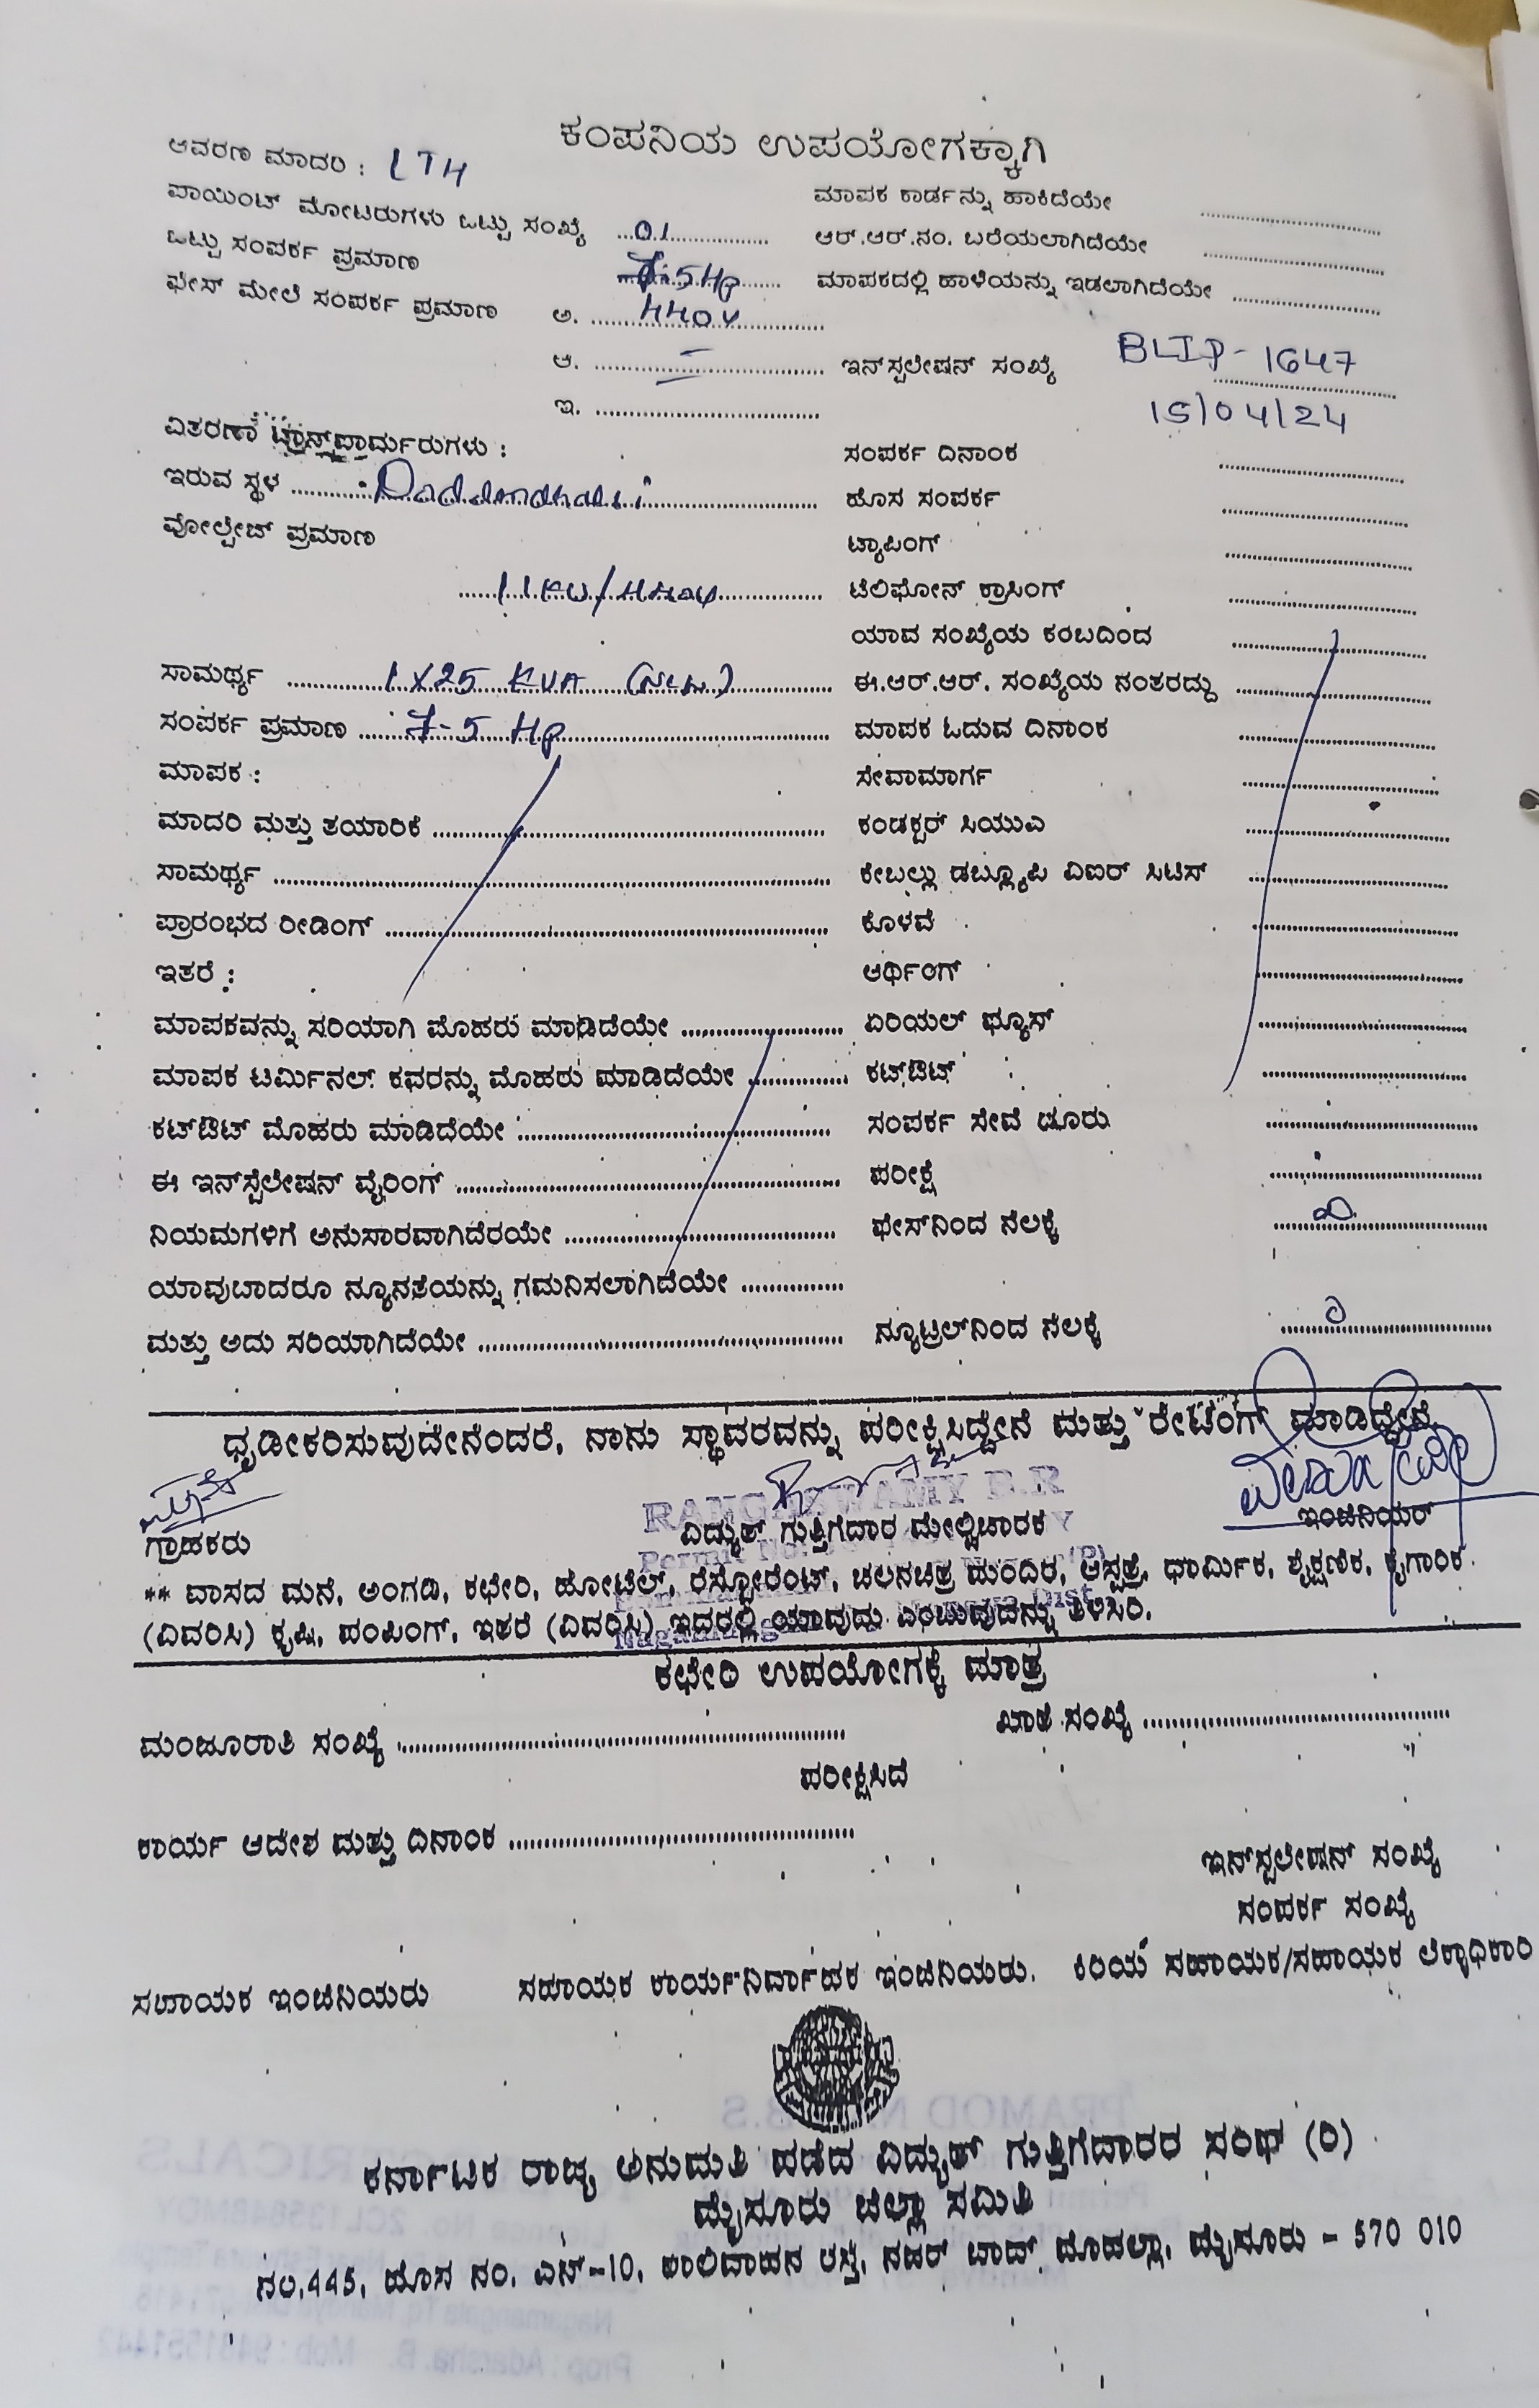 ಕಂಪನಿಯ ಉಪಯೋಗಕ್ಕಾಗಿ
ಆವರಣ ಮಾದರಿ : LTH
ಮಾಪಕ ಕಾರ್ಡನ್ನು ಹಾಕಿದೆಯೇ
ಪಾಯಿಂಟ್ ಮೋಟರುಗಳು ಒಟ್ಟು ಸಂಖ್ಯೆ 01
ಆರ್.ಆರ್.ನಂ. ಬರೆಯಲಾಗಿದೆಯೇ
ಒಟ್ಟು ಸಂಪರ್ಕ ಪ್ರಮಾಣ 7.5 Hp
ಮಾಪಕದಲ್ಲಿ ಹಾಳೆಯನ್ನು ಇಡಲಾಗಿದೆಯೇ
ಫೇಸ್ ಮೇಲೆ ಸಂಪರ್ಕ ಪ್ರಮಾಣ ಅ. 440V
ಆ. ಇನ್‌ಸ್ಟಲೇಷನ್ ಸಂಖ್ಯೆ 1647
ಇ. 15/04/24
ವಿತರಣಾ ಟ್ರಾನ್ಸ್‌ಫಾರ್ಮರುಗಳು :
ಸಂಪರ್ಕ ದಿನಾಂಕ
ಇರುವ ಸ್ಥಳ
ಹೊಸ ಸಂಪರ್ಕ
ವೋಲ್ಟೇಜ್ ಪ್ರಮಾಣ
ಟ್ಯಾಪಿಂಗ್
11KV/440V ಟೆಲಿಫೋನ್ ಕ್ರಾಸಿಂಗ್
ಯಾವ ಸಂಖ್ಯೆಯ ಕಂಬದಿಂದ
ಸಾಮರ್ಥ್ಯ 1X25 KVA ಈ.ಆರ್.ಆರ್. ಸಂಖ್ಯೆಯ ನಂತರದ್ದು
ಸಂಪರ್ಕ ಪ್ರಮಾಣ 7-5 Hp ಮಾಪಕ ಓದುವ ದಿನಾಂಕ
ಮಾಪಕ : ಸೇವಾಮಾರ್ಗ
ಮಾದರಿ ಮತ್ತು ತಯಾರಿಕೆ ಕಂಡಕ್ಟರ್ ಸಿಯುಎ
ಸಾಮರ್ಥ್ಯ ಕೇಬಲ್ಲು ಡಬ್ಲ್ಯೂಪಿ ವಿಐರ್ ಸಿಟಿಸ್
ಪ್ರಾರಂಭದ ರೀಡಿಂಗ್ ಕೊಳವೆ
ಇತರೆ : ಆರ್ಥಿಂಗ್
ಮಾಪಕವನ್ನು ಸರಿಯಾಗಿ ಮೊಹರು ಮಾಡಿದೆಯೇ ಏರಿಯಲ್ ಫ್ಯೂಸ್
ಮಾಪಕ ಟರ್ಮಿನಲ್ ಕವರನ್ನು ಮೊಹರು ಮಾಡಿದೆಯೇ ಕಟ್‌ಔಟ್
ಕಟ್‌ಔಟ್ ಮೊಹರು ಮಾಡಿದೆಯೇ ಸಂಪರ್ಕ ಸೇವೆ ದೂರು
ಈ ಇನ್‌ಸ್ಟೆಲೇಷನ್ ವೈರಿಂಗ್ ಪರೀಕ್ಷೆ
ನಿಯಮಗಳಿಗೆ ಅನುಸಾರವಾಗಿದೆರಯೇ ಫೇಸ್‌ನಿಂದ ನೆಲಕ್ಕೆ
ಯಾವುಬಾದರೂ ನ್ಯೂನತೆಯನ್ನು ಗಮನಿಸಲಾಗಿದೆಯೇ
ಮತ್ತು ಅದು ಸರಿಯಾಗಿದೆಯೇ ನ್ಯೂಟ್ರಲ್‌ನಿಂದ ನೆಲಕ್ಕೆ
ಧೃಡೀಕರಿಸುವುದೇನೆಂದರೆ, ನಾನು ಸ್ಥಾವರವನ್ನು ಪರೀಕ್ಷಿಸಿದ್ದೇನೆ ಮತ್ತು ರೇಟಿಂಗ್ ಮಾಡಿದ್ದೇನೆ
RANGASWAMY B.R
ಗ್ರಾಹಕರು ವಿದ್ಯುತ್ ಗುತ್ತಿಗೆದಾರ ಮೇಲ್ವಿಚಾರಕ ಇಂಜಿನಿಯರ್
** ವಾಸದ ಮನೆ, ಅಂಗಡಿ, ಕಛೇರಿ, ಹೋಟೆಲ್, ರೆಸ್ಟೋರೆಂಟ್, ಚಲನಚಿತ್ರ ಮಂದಿರ, ಆಸ್ಪತ್ರೆ, ಧಾರ್ಮಿಕ, ಶೈಕ್ಷಣಿಕ, ಕೈಗಾರಿಕ
(ವಿವರಿಸಿ) ಕೃಷಿ, ಪಂಪಿಂಗ್, ಇತರೆ (ವಿವರಿಸಿ) ಇದರಲ್ಲಿ ಯಾವುದು ಎಂಬುವುದನ್ನು ತಿಳಿಸಿರಿ.
ಕಛೇರಿ ಉಪಯೋಗಕ್ಕೆ ಮಾತ್ರ
ಮಂಜೂರಾತಿ ಸಂಖ್ಯೆ ಖಾತೆ ಸಂಖ್ಯೆ
ಪರೀಕ್ಷಿಸಿದೆ
ಕಾರ್ಯ ಆದೇಶ ಮತ್ತು ದಿನಾಂಕ
ಇನ್‌ಸ್ಟಲೇಷನ್ ಸಂಖ್ಯೆ
ಸಂಪರ್ಕ ಸಂಖ್ಯೆ
ಸಹಾಯಕ ಇಂಜಿನಿಯರು ಸಹಾಯಕ ಕಾರ್ಯನಿರ್ವಾಹಕ ಇಂಜಿನಿಯರು. ಕಿರಿಯ ಸಹಾಯಕ/ಸಹಾಯಕ ಲೆಕ್ಕಾಧಿಕಾರಿ
ಕರ್ನಾಟಕ ರಾಜ್ಯ ಅನುಮತಿ ಪಡೆದ ವಿದ್ಯುತ್ ಗುತ್ತಿಗೆದಾರರ ಸಂಘ (ರಿ)
ಮೈಸೂರು ಜಿಲ್ಲಾ ಸಮಿತಿ
ನಂ.445, ಹೊಸ ನಂ. ಎನ್-10, ಶಾಲಿವಾಹನ ರಸ್ತೆ, ನಜರ್ ಬಾದ್ ಮೊಹಲ್ಲಾ, ಮೈಸೂರು - 570 010